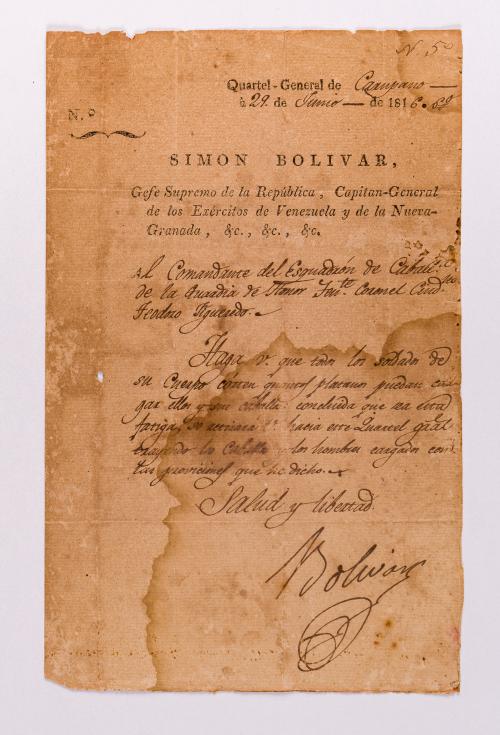 N. 5º
Quartel-General de Carupano
à 29. de Junio de 1816. 6º
N.º
SIMON BOLIVAR,
Gefe Supremo de la República, Capitan-General
de los Exércitos de Venezuela y de la Nueva-
Granada, &c., &c., &c.
Al Comandante del Esquadrón de Caball.ª
de la Guardia de Honor Ten.te Coronel Ciud.no
Teodoro Figueredo.
Haga v. que todos los soldados de
su Cuerpo corten quantos platanos puedan car
gar ellos y sus caballos: concluida que sea esta
fatiga, hacia este Quartel gral
trayendo los Caballos y los hombres cargados con
las provisiones que he dicho.
Salud y libertad.
Bolivar